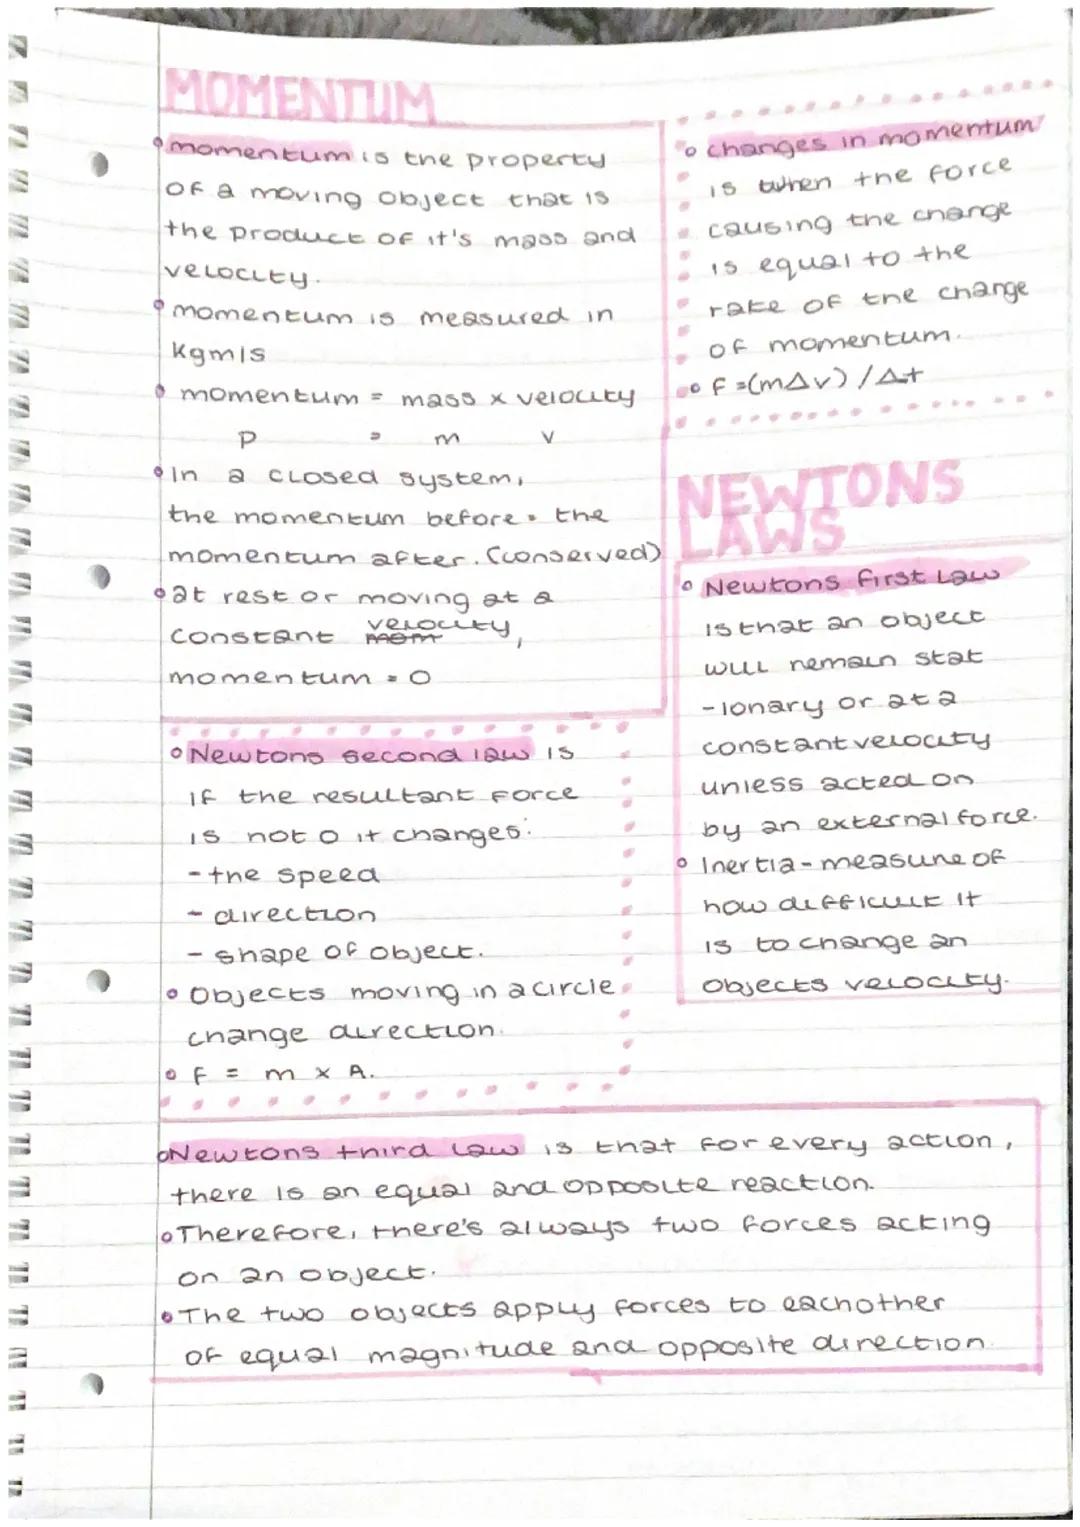 MOMENTUM
momentum is the property
of a moving object that is
the product of it's mass and
velocity.
momentum is measured in
Kgm/s
momentum = mass x velocity
p = m v
In a closed system,
the momentum before = the
momentum after. (conserved)
at rest or moving at a
constant mom velocity,
momentum = 0
changes in momentum
is when the force
causing the change
is equal to the
rate of the change
of momentum.
F =(m∆v) / ∆t
NEWTONS
LAWS
Newtons first Law
is that an object
will remain stat
-ionary or at a
constant velocity
unless acted on
by an external force.
Inertia - measure of
how difficult it
is to change an
objects velocity.
Newtons second law is
if the resultant force
is not 0 it changes:
- the speed
- direction
- shape of object.
Objects moving in a circle
change direction.
F = m x A.
Newtons third Law is that for every action,
there is an equal and opposite reaction.
Therefore, there's always two forces acting
on an object.
The two objects apply forces to eachother
of equal magnitude and opposite direction.